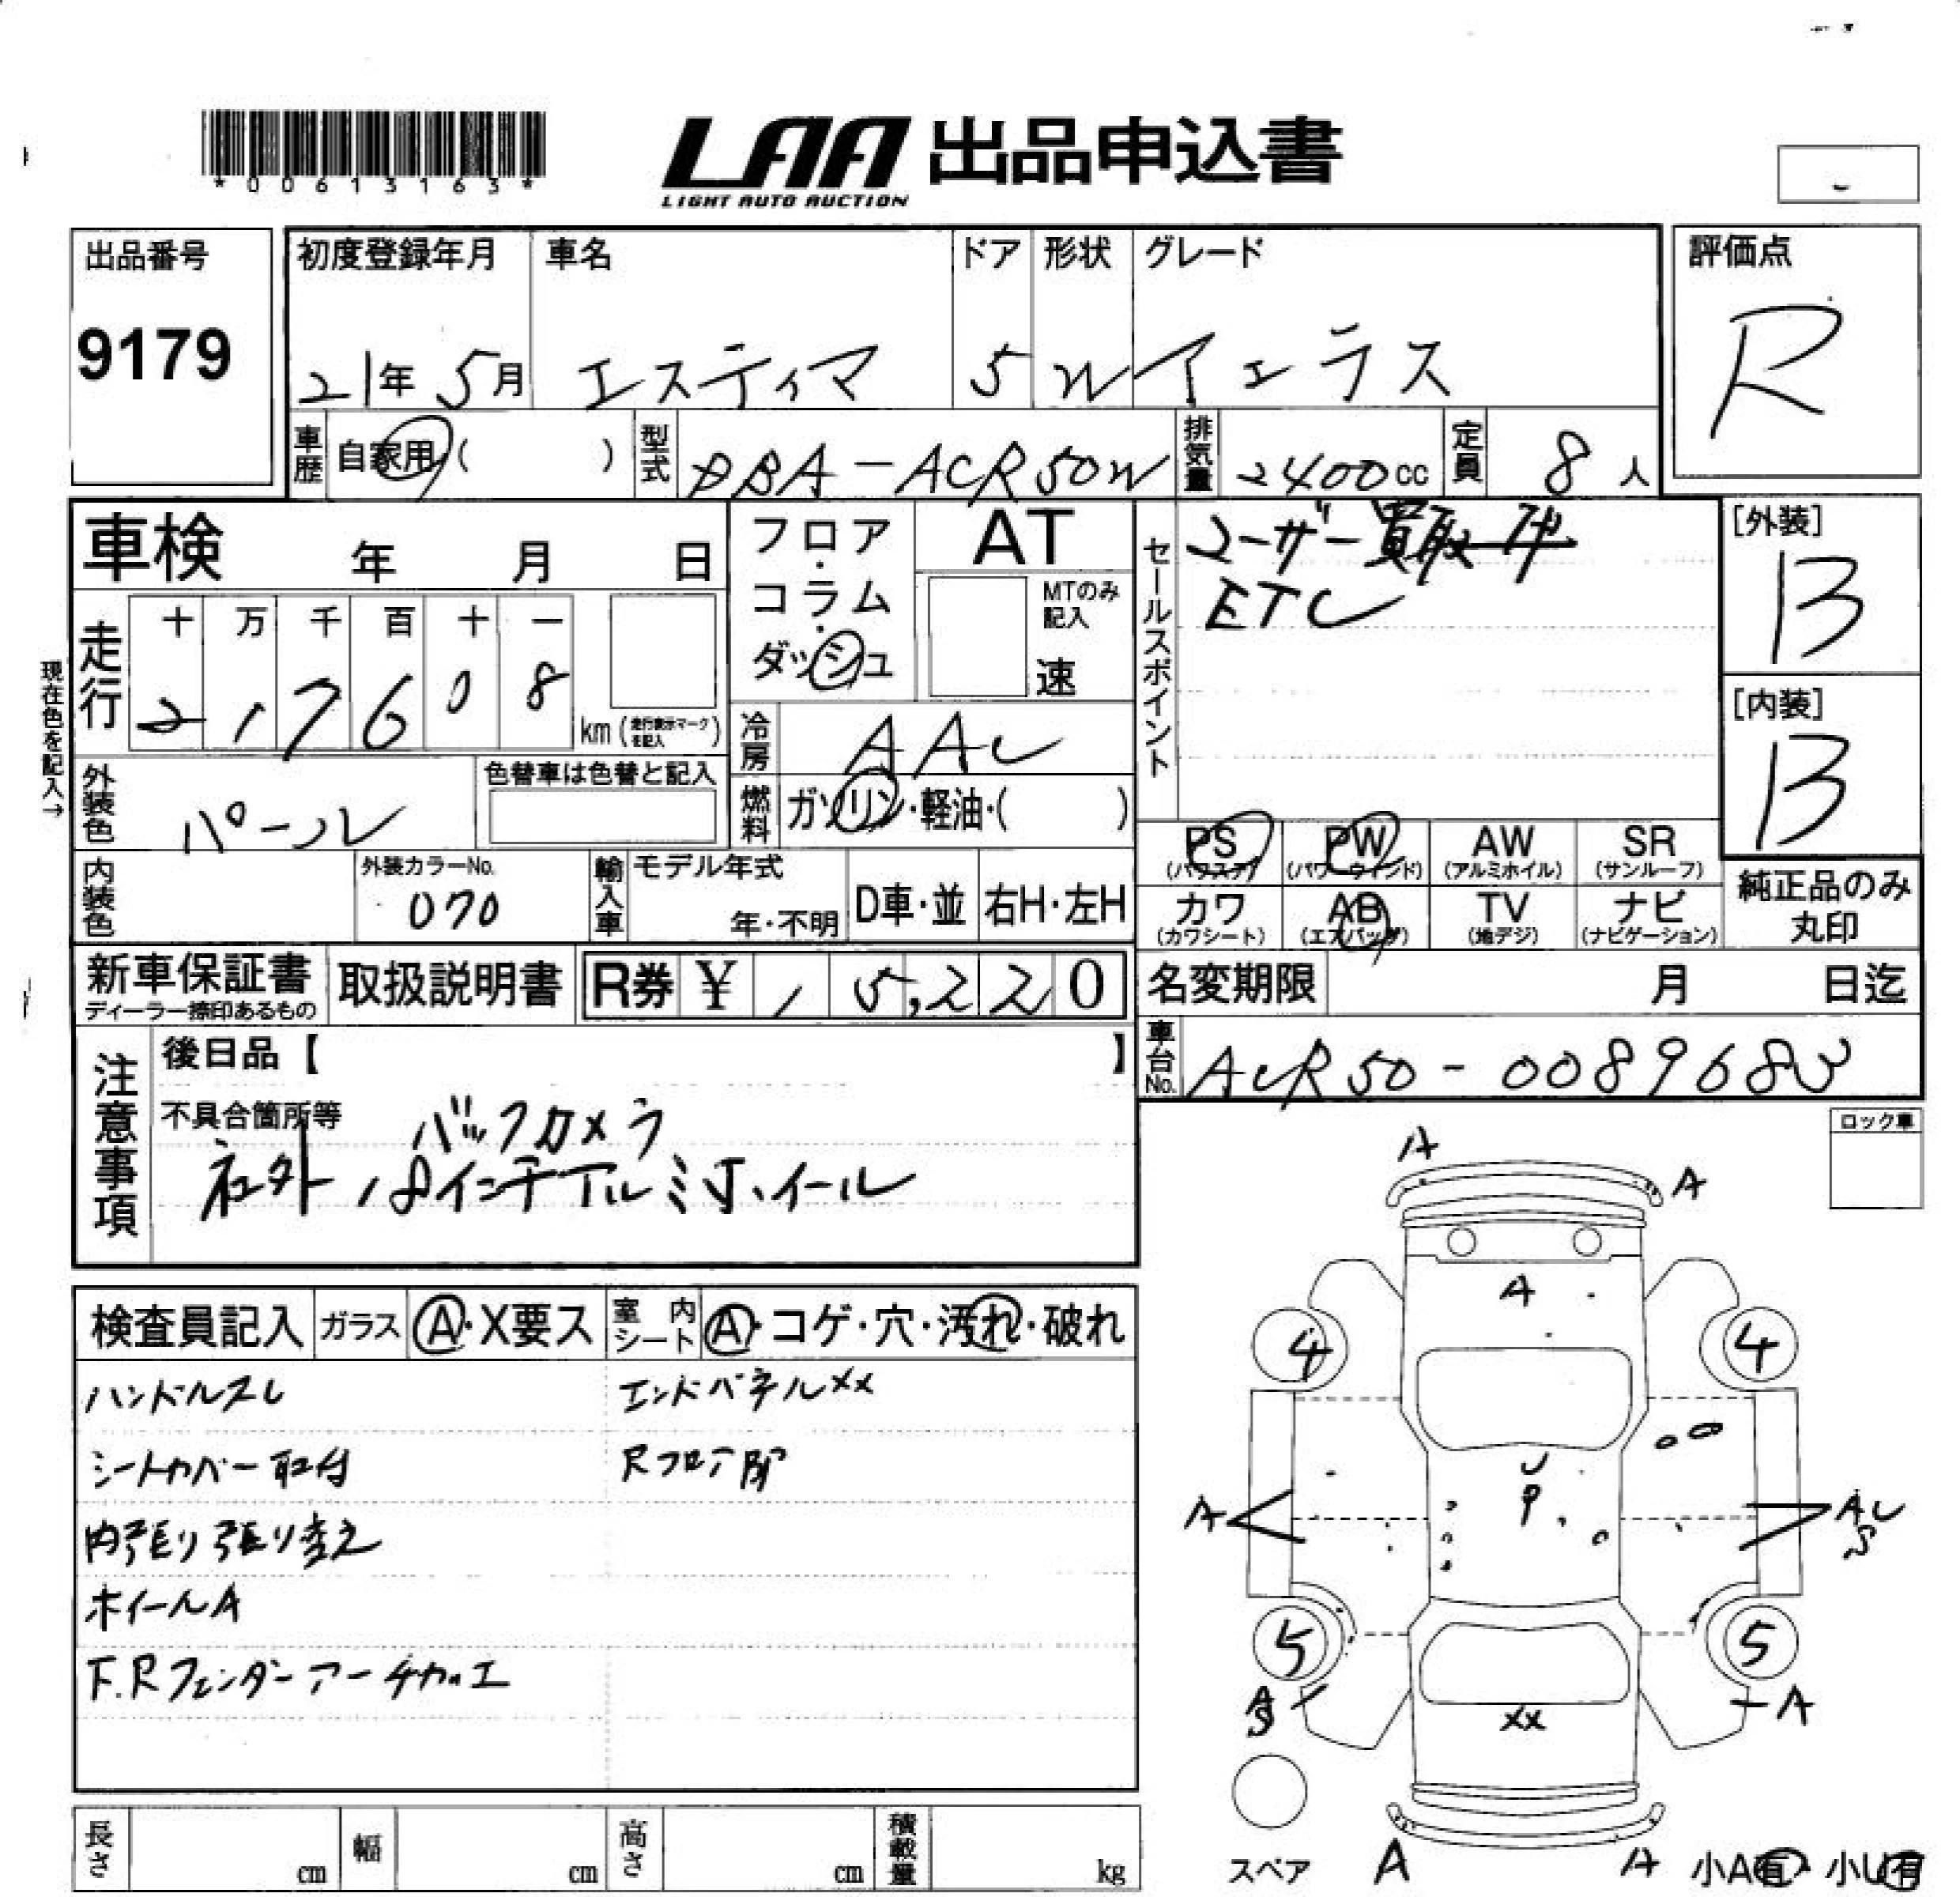 *00613163*
LAA 出品申込書
LIGHT AUTO AUCTION
出品番号 9179
初度登録年月 21年 5月
車名 エスティマ
ドア 5
形状 W
グレード アエラス
評価点 R
車歴 自家用 ( )
型式 DBA-ACR50W
排気量 2400cc
定員 8人
車検 年 月 日
走行 十 万 千 百 十 一
217608 km (走行表示マークを記入)
現在色を記入→
外装色 パール
色替車は色替と記入
内装色
外装カラーNo. 070
フロア・コラム・ダッシュ
AT
MTのみ記入
速
冷房 AAC
燃料 ガソリン・軽油・( )
輸入車 モデル年式 年・不明
D車・並 右H・左H
セールスポイント
ユーザー買取車
ETC
[外装] B
[内装] B
PS (パワステ)
PW (パワーウィンド)
AW (アルミホイル)
SR (サンルーフ)
カワ (カワシート)
AB (エアバッグ)
TV (地デジ)
ナビ (ナビゲーション)
純正品のみ丸印
新車保証書 ディーラー捺印あるもの
取扱説明書
R券 ¥ 15,220
名変期限 月 日迄
車台No. ACR50-0089683
注意事項
後日品【 】
不具合箇所等
バックカメラ
社外 18インチアルミホイール
ロック車
検査員記入
ガラス A・X要ス
室内シート A・コゲ・穴・汚れ・破れ
ハンドルスレ
シートカバー取付
内張り張り替え
ホイールA
F.Rフェンダーアーチ加工
エンドパネルXX
Rフロア部
A
A
A
4
4
U
P
A
AU
S
5
5
A
S
A
XX
A
A
スペア
小A有・小U有
長さ cm
幅 cm
高さ cm
積載量 kg